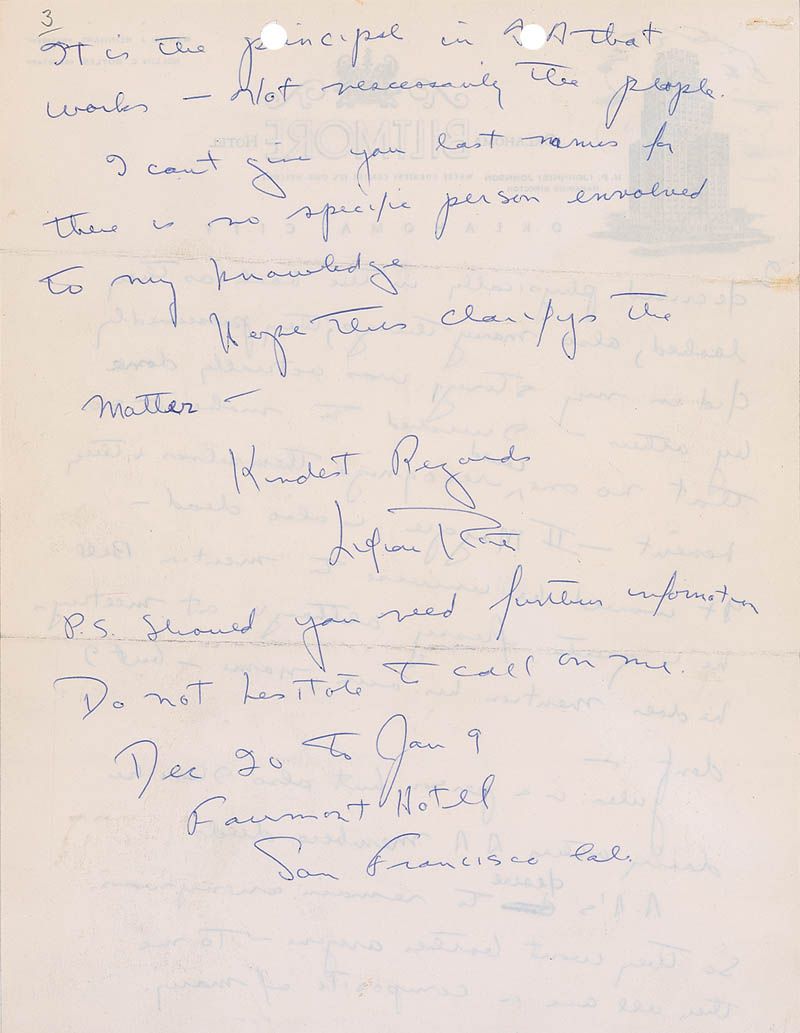 3
It is the principal in A A that
works — Not nescessarily the people.
I can't give you last names for
there is no specific person envolved
to my knowledge
Hope this clarifys the
Matter —
Kindest Regards
Lillian Roth
P.S. Should you need further information
Do not hesitate to call on me.
Dec 20 to Jan 9
Fairmont Hotel
San Francisco Cal.